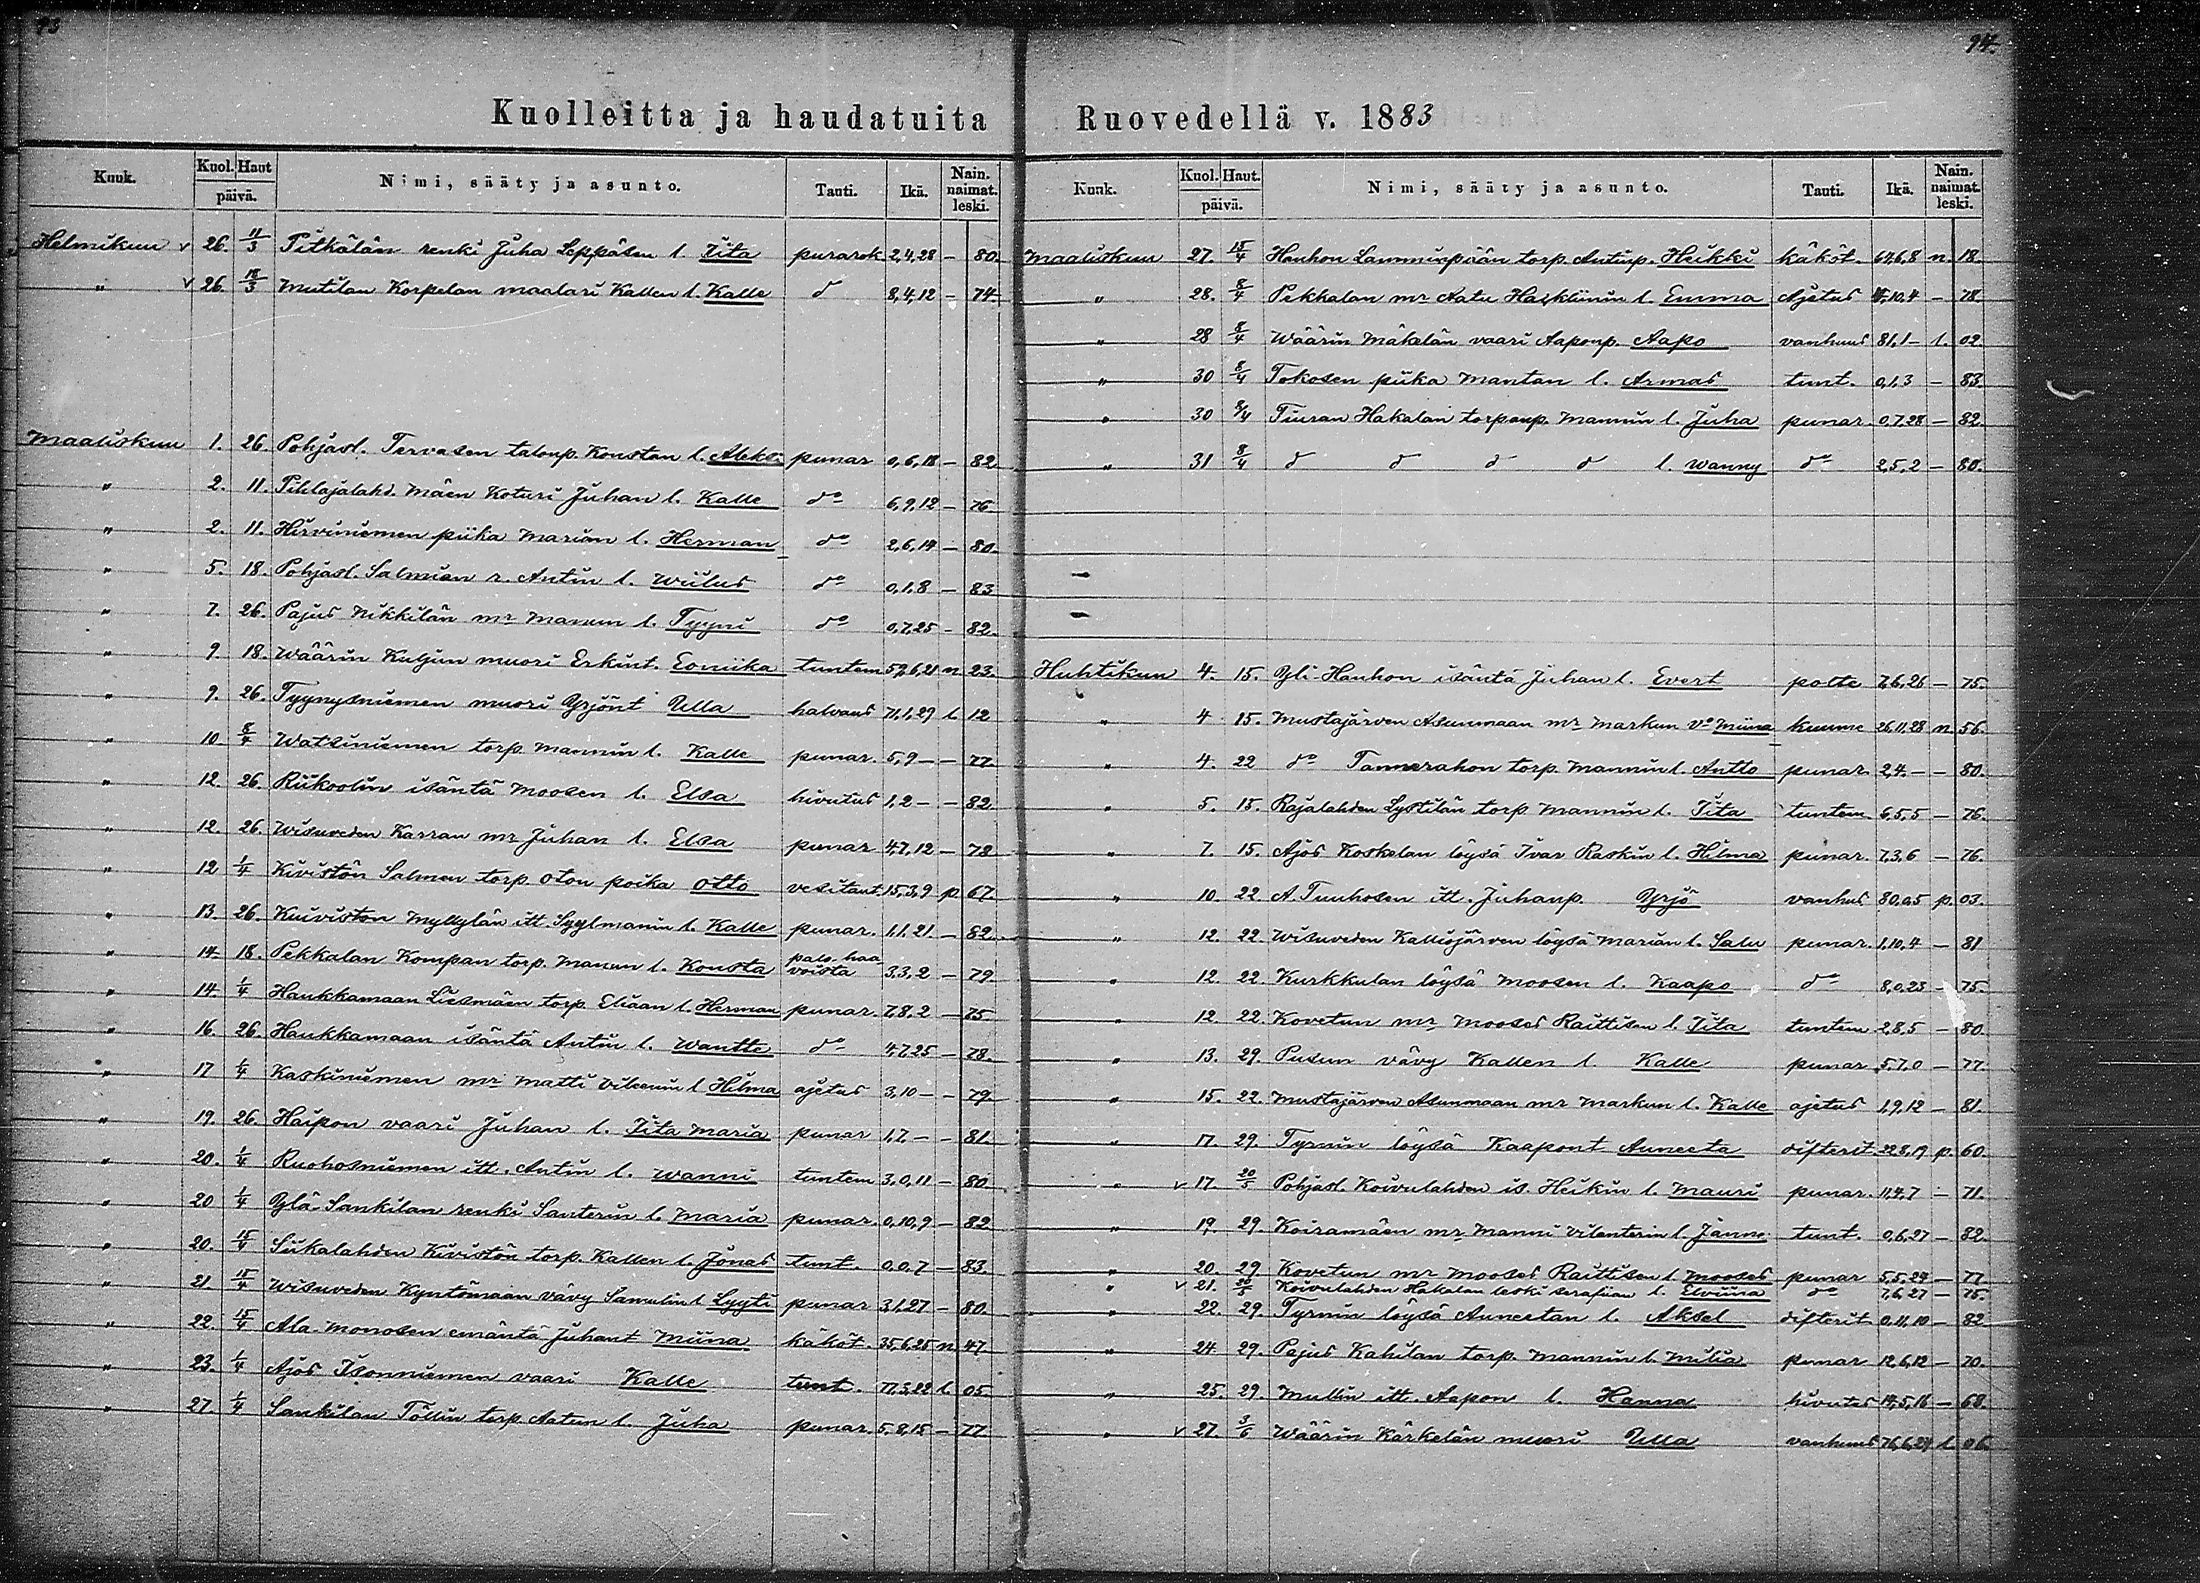 93
Kuolleitta ja haudatuita
Kuuk. Kuol. Haut päivä. Nimi, sääty ja asunto. Tauti. Ikä. Nain. naimat. leski.
Helmikuu v 26. 11/3 Pitkälän renki Juha Leppäsen l. Iita purarok 2,4,28 - 80.
" v 26. 18/3 Mutilan Korpelan maalari Kallen l. Kalle d 8,4,12 - 74
Maaliskuu 1. 26. Pohjasl. Tervasen talonp. Konstan l. Aleks. punar 0,6,18 - 82
" 2. 11. Pihlajalahd. Mäen Koturi Juhan l. Kalle do 6,9,12 - 76
" 2. 11. Hirviniemen piika Marian l. Herman do 2,6,14 - 80.
" 5. 18. Pohjasl. Salmien r. Antin l. Wiilus do 0,1,8 - 83
" 7. 26. Pajus Nikkilän mr Manun l. Tyyni do 0,7,25 - 82.
" 9. 18. Wäärin Kuljun muori Erkint. Eoniika tuntem 59,6,21 n 23.
" 9. 26. Tyynysniemen muori Yrjönt Ulla halvaus 71,1,29 l. 12
" 10. 8/4 Watsiniemen torp. Mannin l. Kalle punar. 5,9 - - 77
" 12. 26. Riikoolin isäntä Moosen l. Elsa hivutus 1,2 - - 82
" 12. 26. Wisuveden Karran mr Juhan l. Elsa punar 4,7,12 - 78
" 12 1/4 Kivistön Salmen torp. Oton poika Otto vesitaut. 15,3,9 p 67.
" 13. 26. Kuiviston Myllylän itt. Syylmanin l. Kalle punar. 1,1.21. - 82.
" 14 18. Pekkalan Kompan torp. Manun l. Konsta palo haavoista 3,3,2 - 79.
" 14. 1/4 Haukkamaan Liesmäen torp. Eliaan l. Herman punar. 7,8,2 - 75
" 16. 26. Haukkamaan isäntä Antin l. Wantte do 4,7,25 - 78.
" 17 1/4 Kaskiniemen mr Matti Vileenin l Hilma ajetus 3,10 - - 79
" 19. 26. Haipon vaari Juhan l. Iita Maria punar 1,7 - - 81.
" 20. 1/4 Ruohosniemen itt. Antin l. Wanni tuntem 3,0,11 - 80
" 20 1/4 Ylä-Sankilan renki Santerin l. Maria punar. 0,10,9 - 82
" 20. 15/4 Siikalahden Kivistön torp. Kallen l. Jonas tunt. 0.0.7 - 83.
" 21 15/4 Wisuveden Kyntömaan vävy Samulin l Lyyti punar 3,1,27 - 80.
" 22. 15/4 Ala-Monosen emäntä Juhant Miina käköt. 35,6,25 n. 47.
" 23. 1/4 Ajos Isonniemen vaari Kalle tunt. 77.3.22 l. 05.
" 27. 1/4 Sankilan Töllin torp. Aatun l. Juha punar. 5,8,15 - 77
94.
Ruovedellä v. 1883
Kuuk. Kuol. Haut. päivä. Nimi, sääty ja asunto. Tauti. Ikä. Nain. naimat. leski.
Maaliskuu 27. 15/4 Hanhon Lamminpään torp. Antinp. Heikki käköt. 64,6,8 n. 18.
" 28. 8/4 Pekkalan mr Aatu l. Emma Ajetus 10.4 - 78
" 28 8/4 Wäärin Mäkelän vaari Aaponp. Aapo vanhuus 81,1 - l. 02.
" 30 8/4 Tokosen piika Mantan l. Armas tunt. 0,1.3 - 83.
" 30 8/4 Tiuran Hakalan torpanp. Mannin l. Juha punar. 0,7.28 - 82
" 31 8/4 d d d d l. Wanny do 2,5,2 - 80.
Huhtikuu 4. 15. Yli-Hanhon isäntä Juhan l. Evert potte 7,6,26 - 75.
" 4 15. Mustajärven Asunmaan mr Markun vo Miina kuume 26,11,28 n 56.
" 4. 22 do Tannerahon torp. Mannin l. Antto punar 2,4. - - 80.
" 5. 15. Rajalahden Lystilän torp. Mannin l. Iita tuntem 6,5,5 - 76.
" 7. 15. Ajos Koskelan löysä Ivar Raskin l. Hilma punar. 7,3,6 - 76.
" 10. 22 A. Tuuhosen itt. Juhanp. Yrjö vanhus 80.0.5 p. 03.
" 12. 22. Wisuveden Kalliojärven löysä Marian l. Salu punar. 1,10,4 - 81
" 12. 22. Kurkkulan löysä Moosen l. Kaapo do 8,0,23 - 75.
" 12. 22. Kovetun mr Mooses Raittisen l. Iita tuntem 2,8,5 - 80.
" 13. 29. Pusun vävy Kallen l. Kalle punar 5,7,0 - 77.
" 15. 22. Mustajärven Asunmaan mr Markun l. Kalle ajetus 1,9,12 - 81.
" 17. 29. Tyrnin löysä Kaapont Anneeta difterit. 22,8,19 p. 60.
" v 17. 20/5 Pohjasl. Koivulahden is. Heikin l. Mauri punar. 11,4,7 - 71.
" 19. 29. Koiramäen mr Manni Vilenterin l. Janne. tunt. 0,6,27 - 82.
" 20. 29. Kovetun mr Mooses Raittisen l. Mooses punar 5,5,24 - 77
" v 21. 20/5 Koivulahden Hakalan leski Serafian l. Elviina do 7,6,27 - 75.
" 22. 29. Tyrnin löysä Anneetan l. Aksel difterit. 0,11,10 - 82
" 24 29. Pajus Kahilan torp. Mannin l. Milia punar 12,6,12 - 70.
" 25. 29. Mullin itt. Aapon l. Hanna hivutus 14,5,16 - 68.
" v 27. 3/6 Wäärin Kärkelän muori Ulla vanhuus 76,6,27 l. 06.